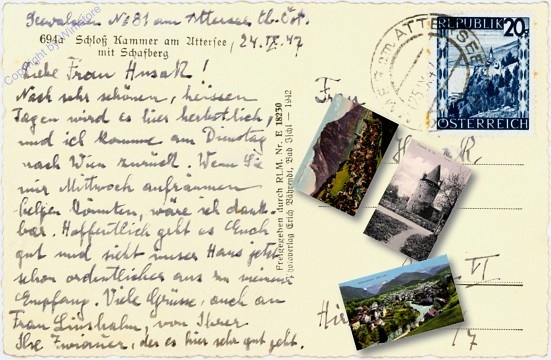 Seewalchen No 81 am Attersee, Ob. Öst.
694a Schloß Kammer am Attersee
mit Schafberg
24.IX.47
Liebe Frau Husak!
Nach sehr schönen, heissen
Tagen wird es hier herbstlich,
und ich komme am Dienstag
nach Wien zurück. Wenn Sie
mir Mittwoch aufräumen
helfen könnten, wäre ich dank-
bar. Hoffentlich geht es Euch
gut und sieht unser Haus jetzt
schon ordentlicher aus zu meinem
Empfang. Viele Grüsse, auch an
Frau von Ihrer
Ilse der es hier sehr gut geht.
Freigegeben durch RLM. Nr. E 18230
Photoverlag Erich Bährendt, Bad Ischl — 1942
Copyright by
REPUBLIK
20g
ÖSTERREICH
ATTERSEE
Frau
H
VI
Hir
17